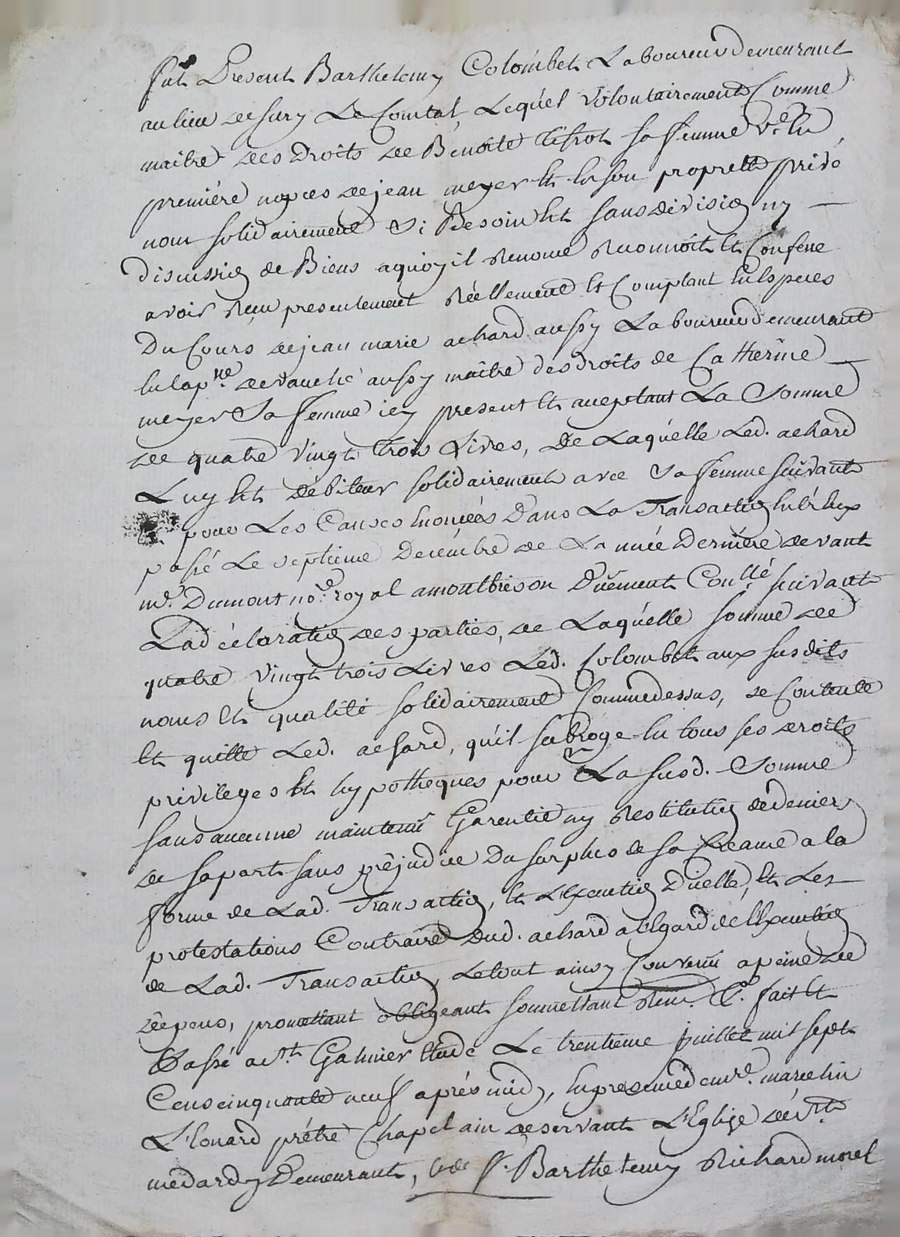 fut Présent Barthelemy Colombet Laboureur demeurant
au lieu de Sury Le Comtal Lequel volontairement Comme
maître des Droits de Bénoite sa femme v.e en
premiére nopces de jean meyer Et En son propre Et privé
nom solidairement si Besoin Est sans division ny
discussion de Biens aquoy il renonce reconnoit Et Confesse
avoir reçu presentement réellement Et Comptant En Especes
Du Cours de jean marie achard aussy Laboureur demeurant
En Lap.sse de vauche aussy maître des droits de Catherine
meyer sa femme icy present Et aceptant La Somme
de quatre vingt trois Livres, De Laquelle Led. achard
Luy Est Débiteur solidairement avec sa femme suivant
Et pour Les Causes Enoncées Dans La Transaction Entr'eux
passé Le septieme Decembre de La nnée Derniére devant
m.e Dumont no.re royal amontbrison Düement Collé suivant
La déclaration des parties, de Laquelle somme de
quatre vingt trois Livres Led. Colombet aux susdits
noms Et qualité solidairement Comme dessus, se Contente
Et quitte Led. achard, qu'il subroge En tous ses droits
privileges Et hypotheques pour La susd. Somme
sans aucune maintenüe Garentie ny restitution de deniers
de sa part sans préjudice Du surplus de sa Creance a la
forme de Lad. Transaction, Et L'Execution D'icelle, Et Les
protestations Contraires Dud. achard a l'Egard de l'Execution
de Lad. Transaction, Le tout ainsy Convenu apeine de
dépens, promettant obligeant soumettant renc. C.a fait Et
Passé a S.t Galmier Etude Le trentieme juillet mil sept
Cens cinquante neuf aprés midy, En presence de m.re marcelin
L'Eonard prêtre Chapelain deservant L'Eglise de S.t
medard y Demeurant, Et de S.r Barthelemy Richard morel